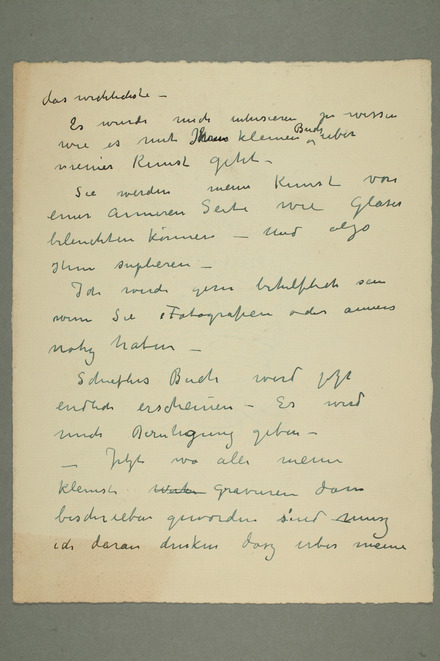 das wichtichste –
Es würde mich interesieren zu wissen
wie es mit Ihrem kleinen Buch über
meiner Kunst geht –
Sie werden meine Kunst von
einer anneren Seite wie Glaser
beleuchten können – Und also
Ihm supleren –
Ich würde gern behilflich sein
wenn Sie Fotografien oder anneres
notig haben –
Schieflers Buch wird jetzt
endlich erscheinen – Es wird
mich Beruhigung geben –
– Jetzt wo alle meine
kleinste Gravuren dam
beschrieben geworden sind musz
ich daran denken dasz uber meine